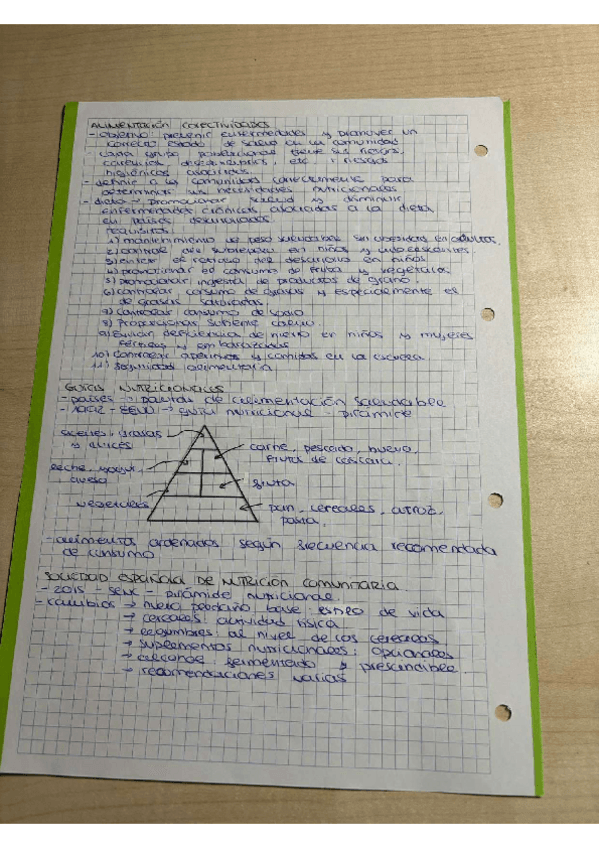 ALIMENTACIÓN COLECTIVIDADES
- objetivo: prevenir enfermedades y promover un
correcto estado de salud en la comunidad
cada grupo poblacional tiene sus riesgos,
carencias, desequilibrios, etc y riesgos
higiénicos asociados.
- definir a las comunidades correctamente para
determinar sus necesidades nutricionales
- dieta → promocionar salud y disminuir
enfermedades crónicas asociadas a la dieta
en países desarrollados
requisitos:
1) mantenimiento de peso saludable sin obesidad en adultos.
2) control del sobrepeso en niños y adolescentes
3) evitar el retraso del desarrollo en niños
4) promocionar el consumo de fruta y vegetales
5) promocionar ingesta de productos de grano.
6) controlar consumo de grasas y especialmente el
de grasas saturadas
7) controlar consumo de
8) Proporcionar suficiente calcio.
9) Evitar deficiencia de hierro en niños y mujeres
fértiles y embarazadas
10) Controlar aperitivos y comidas en la escuela
11) Seguridad alimentaria
GUÍAS NUTRICIONALES
- países → pautas de alimentación saludable
- 1992 - EEUU → guía nutricional pirámide
aceites, grasas
y dulces
carne, pescado, huevo,
fruta de cáscara.
leche, yogur,
queso
fruta
vegetales
pan, cereales, arroz,
pasta.
- alimentos ordenados según frecuencia recomendada
de consumo
SOCIEDAD ESPAÑOLA DE NUTRICIÓN COMUNITARIA
- 2015 - SENC - pirámide nutricional
- cambios → nuevo peldaño base: estilo de vida
→ cereales: actividad física
→ legumbres al nivel de los cereales
→ suplementos nutricionales: opcionales
→ alcohol: fermentado y prescindible
→ recomendaciones varias